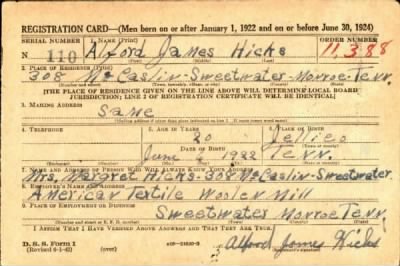 REGISTRATION CARD—(Men born on or after January 1, 1922 and on or before June 30, 1924)
SERIAL NUMBER 1. NAME (Print) ORDER NUMBER
N 110 Alford James Hicks 11,388
(First) (Middle) (Last)
2. PLACE OF RESIDENCE (Print)
308 McCaslin-Sweetwater-Monroe Tenn.
[THE PLACE OF RESIDENCE GIVEN ON THE LINE ABOVE WILL DETERMINE LOCAL BOARD
JURISDICTION; LINE 2 OF REGISTRATION CERTIFICATE WILL BE IDENTICAL]
3. MAILING ADDRESS
Same
[Mailing address if other than place indicated on line 2. If same insert word same]
4. TELEPHONE 5. AGE IN YEARS 6. PLACE OF BIRTH
20 Jellico
DATE OF BIRTH
June 1922 Tenn.
7. NAME AND ADDRESS OF PERSON WHO WILL ALWAYS KNOW YOUR ADDRESS
Mrs. Margaret Hicks-308 McCaslin-Sweetwater
8. EMPLOYER'S NAME AND ADDRESS
American Textile Woolen Mill
9. PLACE OF EMPLOYMENT OR BUSINESS
Sweetwater Monroe Tenn.
I AFFIRM THAT I HAVE VERIFIED ABOVE ANSWERS AND THAT THEY ARE TRUE.
D. S. S. Form 1
(Revised 6-1-42) (over) Alford James Hicks